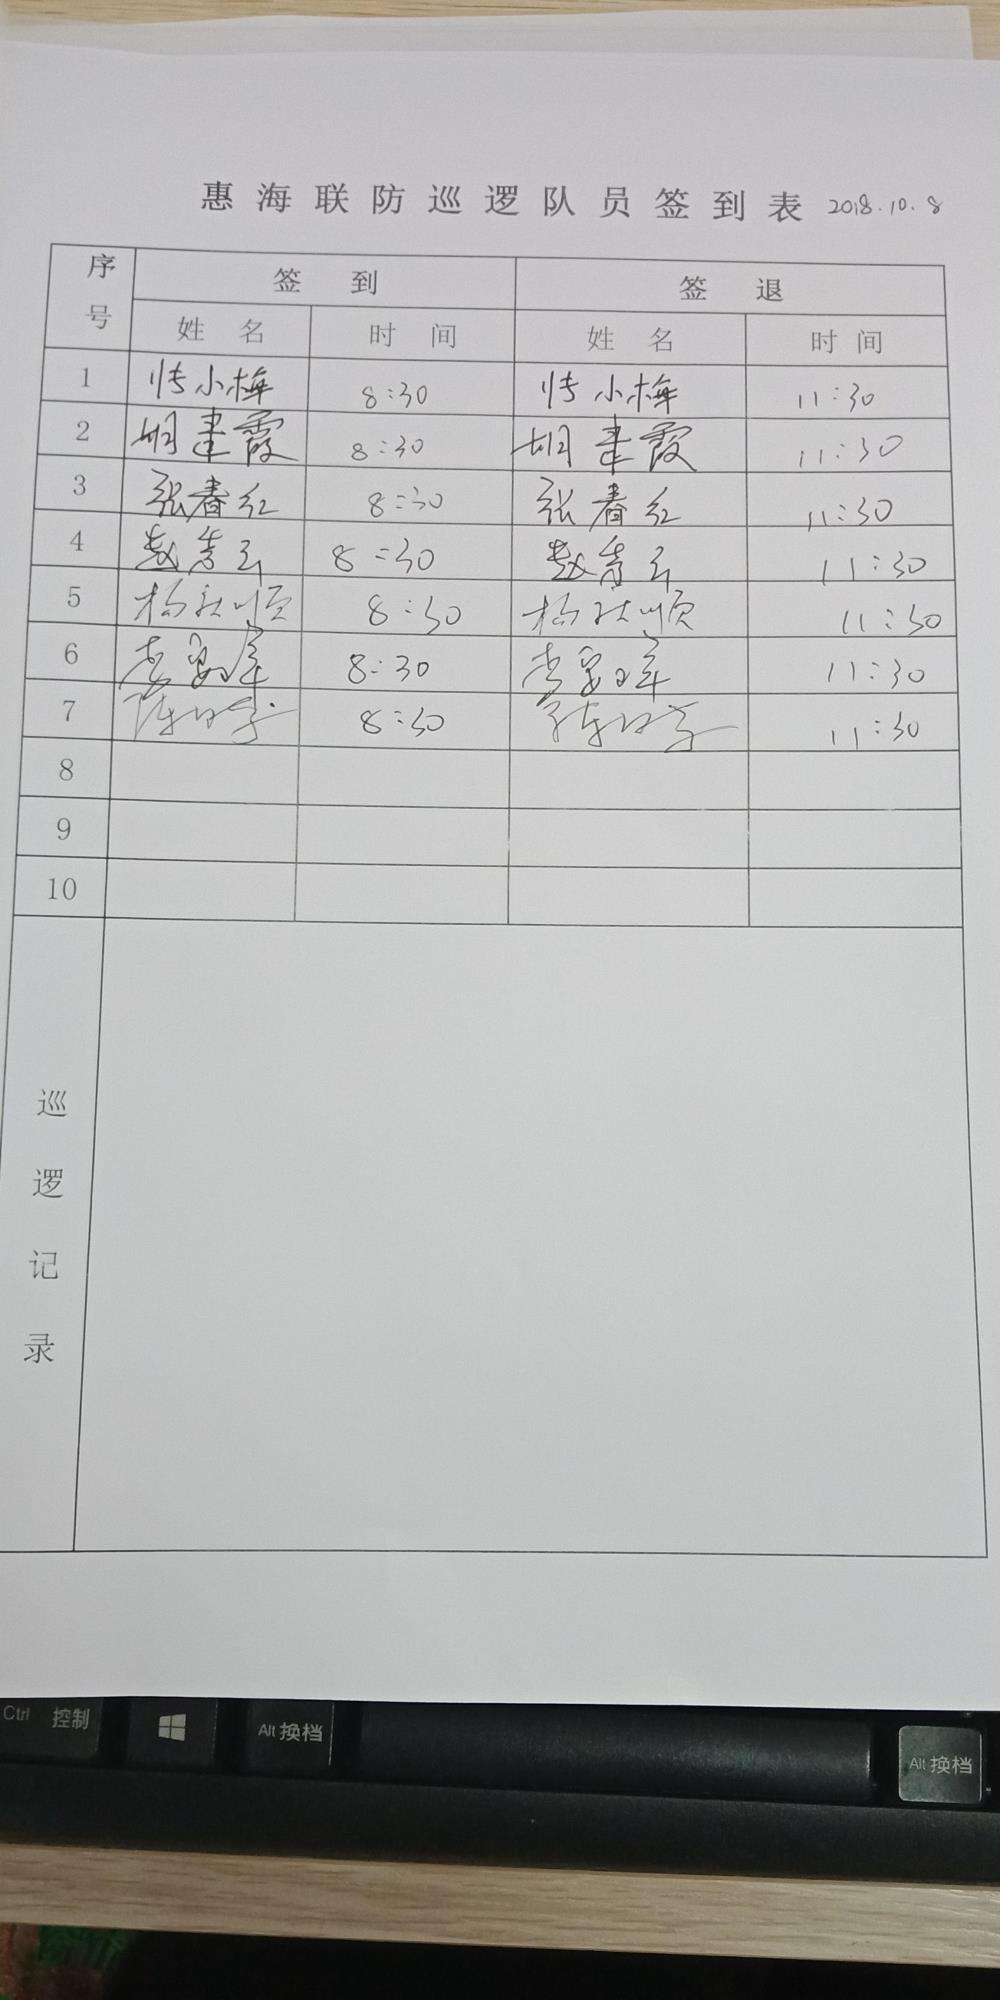 惠海联防巡逻队员签到表 2018.10.8
序号 签到 签退
姓名 时间 姓名 时间
1 小梅 8:30 小梅 11:30
2 胡建霞 8:30 胡建霞 11:30
3 张春红 8:30 张春红 11:30
4 赵秀云 8:30 赵秀云 11:30
5 杨秋顺 8:30 杨秋顺 11:30
6 8:30 11:30
7 8:30 11:30
8
9
10
巡逻记录
Ctrl 控制 Alt 换档 Alt 换档